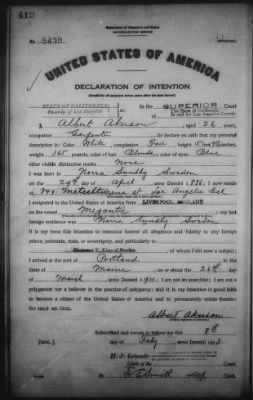 412
No. 5498
Department of Commerce and Labor
NATURALIZATION SERVICE
UNITED STATES OF AMERICA
DECLARATION OF INTENTION
(Invalid for all purposes seven years after the date hereof)
STATE OF CALIFORNIA
County of Los Angeles
In the SUPERIOR Court
of The State of California
In and for Los Angeles County
I, Albert Akerson, aged 26 years,
occupation Carpenter, do declare on oath that my personal
description is: Color White, complexion Fair, height 5 feet inches,
weight 160 pounds, color of hair Blonde, color of eyes Blue
other visible distinctive marks None
I was born in Norra Sundby Sweden
on the 29th day of April, anno Domini 1886; I now reside
at 744 Los Angeles Cal
I emigrated to the United States of America from LIVERPOOL, ENGLAND
on the vessel Megantic; my last
foreign residence was Norra Sundby Sweden
It is my bona fide intention to renounce forever all allegiance and fidelity to any foreign
prince, potentate, state, or sovereignty, and particularly to
of whom I am now a subject;
I arrived at the port of Portland, in the
State of Maine on or about the 26th day
of March, anno Domini 1911; I am not an anarchist; I am not a
polygamist nor a believer in the practice of polygamy; and it is my intention in good faith
to become a citizen of the United States of America and to permanently reside therein:
SO HELP ME GOD.
Albert Akerson
Subscribed and sworn to before me this 8th
[SEAL] day of July, anno Domini 1913
H. J. Lelande
Clerk of the Court.
By Clerk.